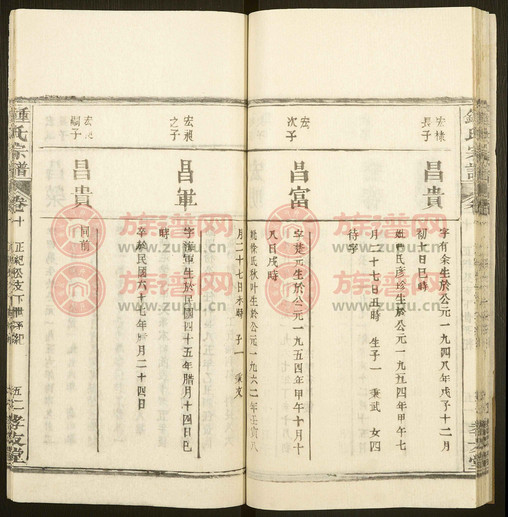 宏
長子
昌貴
字有余生於公元一九四八年戊子十二月
初七日巳時
氏彥珍生於公元一九五四年甲午七
月二十七日丑時 生子一 武 女四
待字
宏
次子
昌富
字楚元生於公元一九五四年甲午十月十
八日戌時
氏秋叶生於公元一九六二年壬寅八
月二十七日 時 子一 文
宏
之子
昌軍
字 軍生於民國四十五年腊月十四日巳
時
辛於民國六十七年腊月二十四日
宏
子
昌貴
同前
鍾氏宗譜
卷
十
正紀公支下世系
五二
孝友堂
族谱网
www.zupu.cn
族谱网
www.zupu.cn
族谱网
www.zupu.cn
族谱网
www.zupu.cn